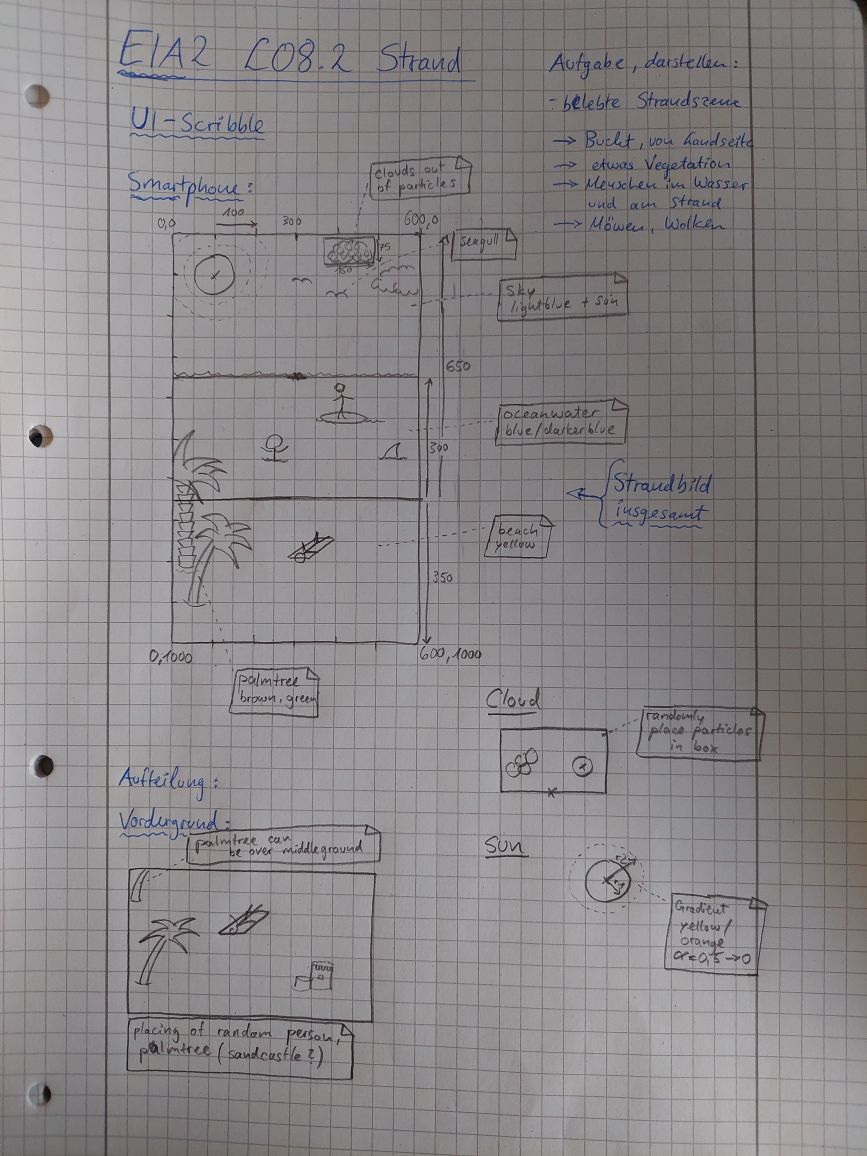 EIA2 L08.2 Strand
Aufgabe, darstellen:
- belebte Strandszene
→ Bucht, von Landseite
→ etwas Vegetation
→ Menschen im Wasser
und am Strand
→ Möwen, Wolken
UI-Scribble
Smartphone:
clouds out
of particles
0,0
100
300
600,0
75
150
seagull
sky
lightblue + sun
650
oceanwater
blue/darkerblue
300
Strandbild
insgesamt
beach
yellow
350
0,1000
600,1000
palmtree
brown, green
Cloud
randomly
place particles
in box
Aufteilung:
Vordergrund:
palmtree can
be over middleground
Sun
r2
r1
Gradient
yellow/
orange
α=0,5→0
placing of random person,
palmtree (sandcastle?)